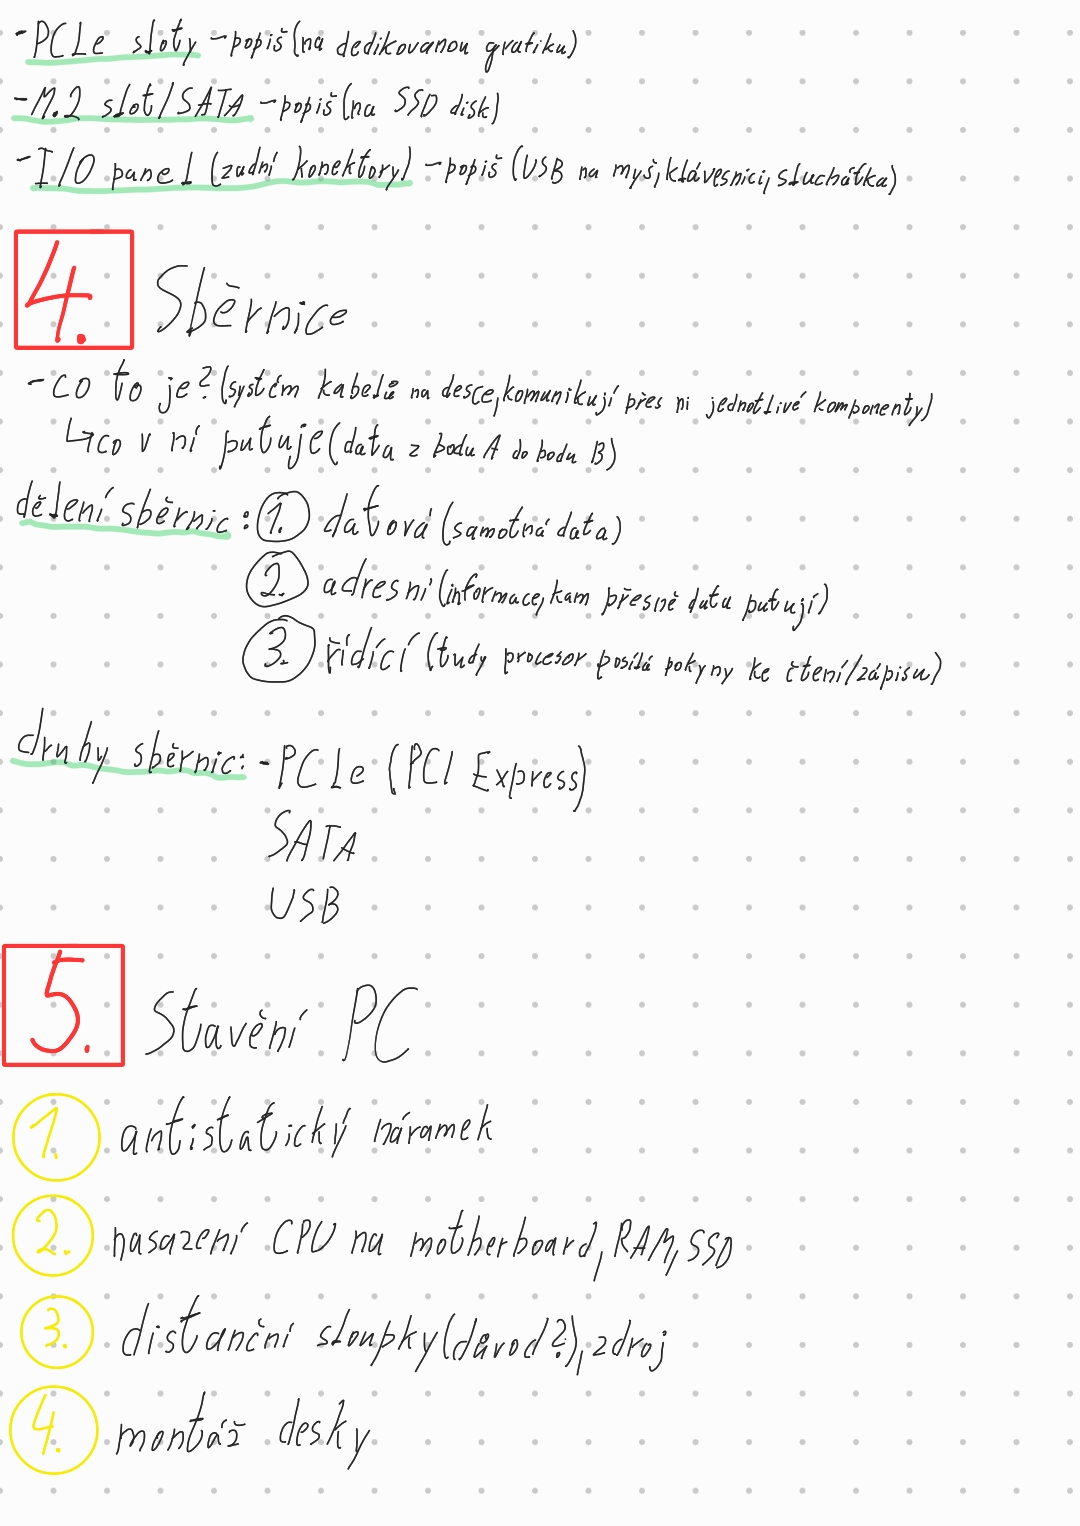 -PCIe sloty -popiš(na dedikovanou grafiku)
-M.2 slot/SATA -popiš(na SSD disk)
-I/O panel (zadní konektory) -popiš (USB na myš,klávesnici,sluchátka)
4. Sběrnice
-co to je?(systém kabelů na desce,komunikují přes ni jednotlivé komponenty)
↳co v ní putuje(data z bodu A do bodu B)
dělení sběrnic: 1. datová (samotná data)
2. adresní(informace,kam přesně data putují)
3. řídící (tudy procesor posílá pokyny ke čtení/zápisu)
druhy sběrnic: -PCIe (PCI Express)
SATA
USB
5. Stavění PC
1. antistatický náramek
2. nasazení CPU na motherboard,RAM,SSD
3. distanční sloupky(důvod?),zdroj
4. montáž desky